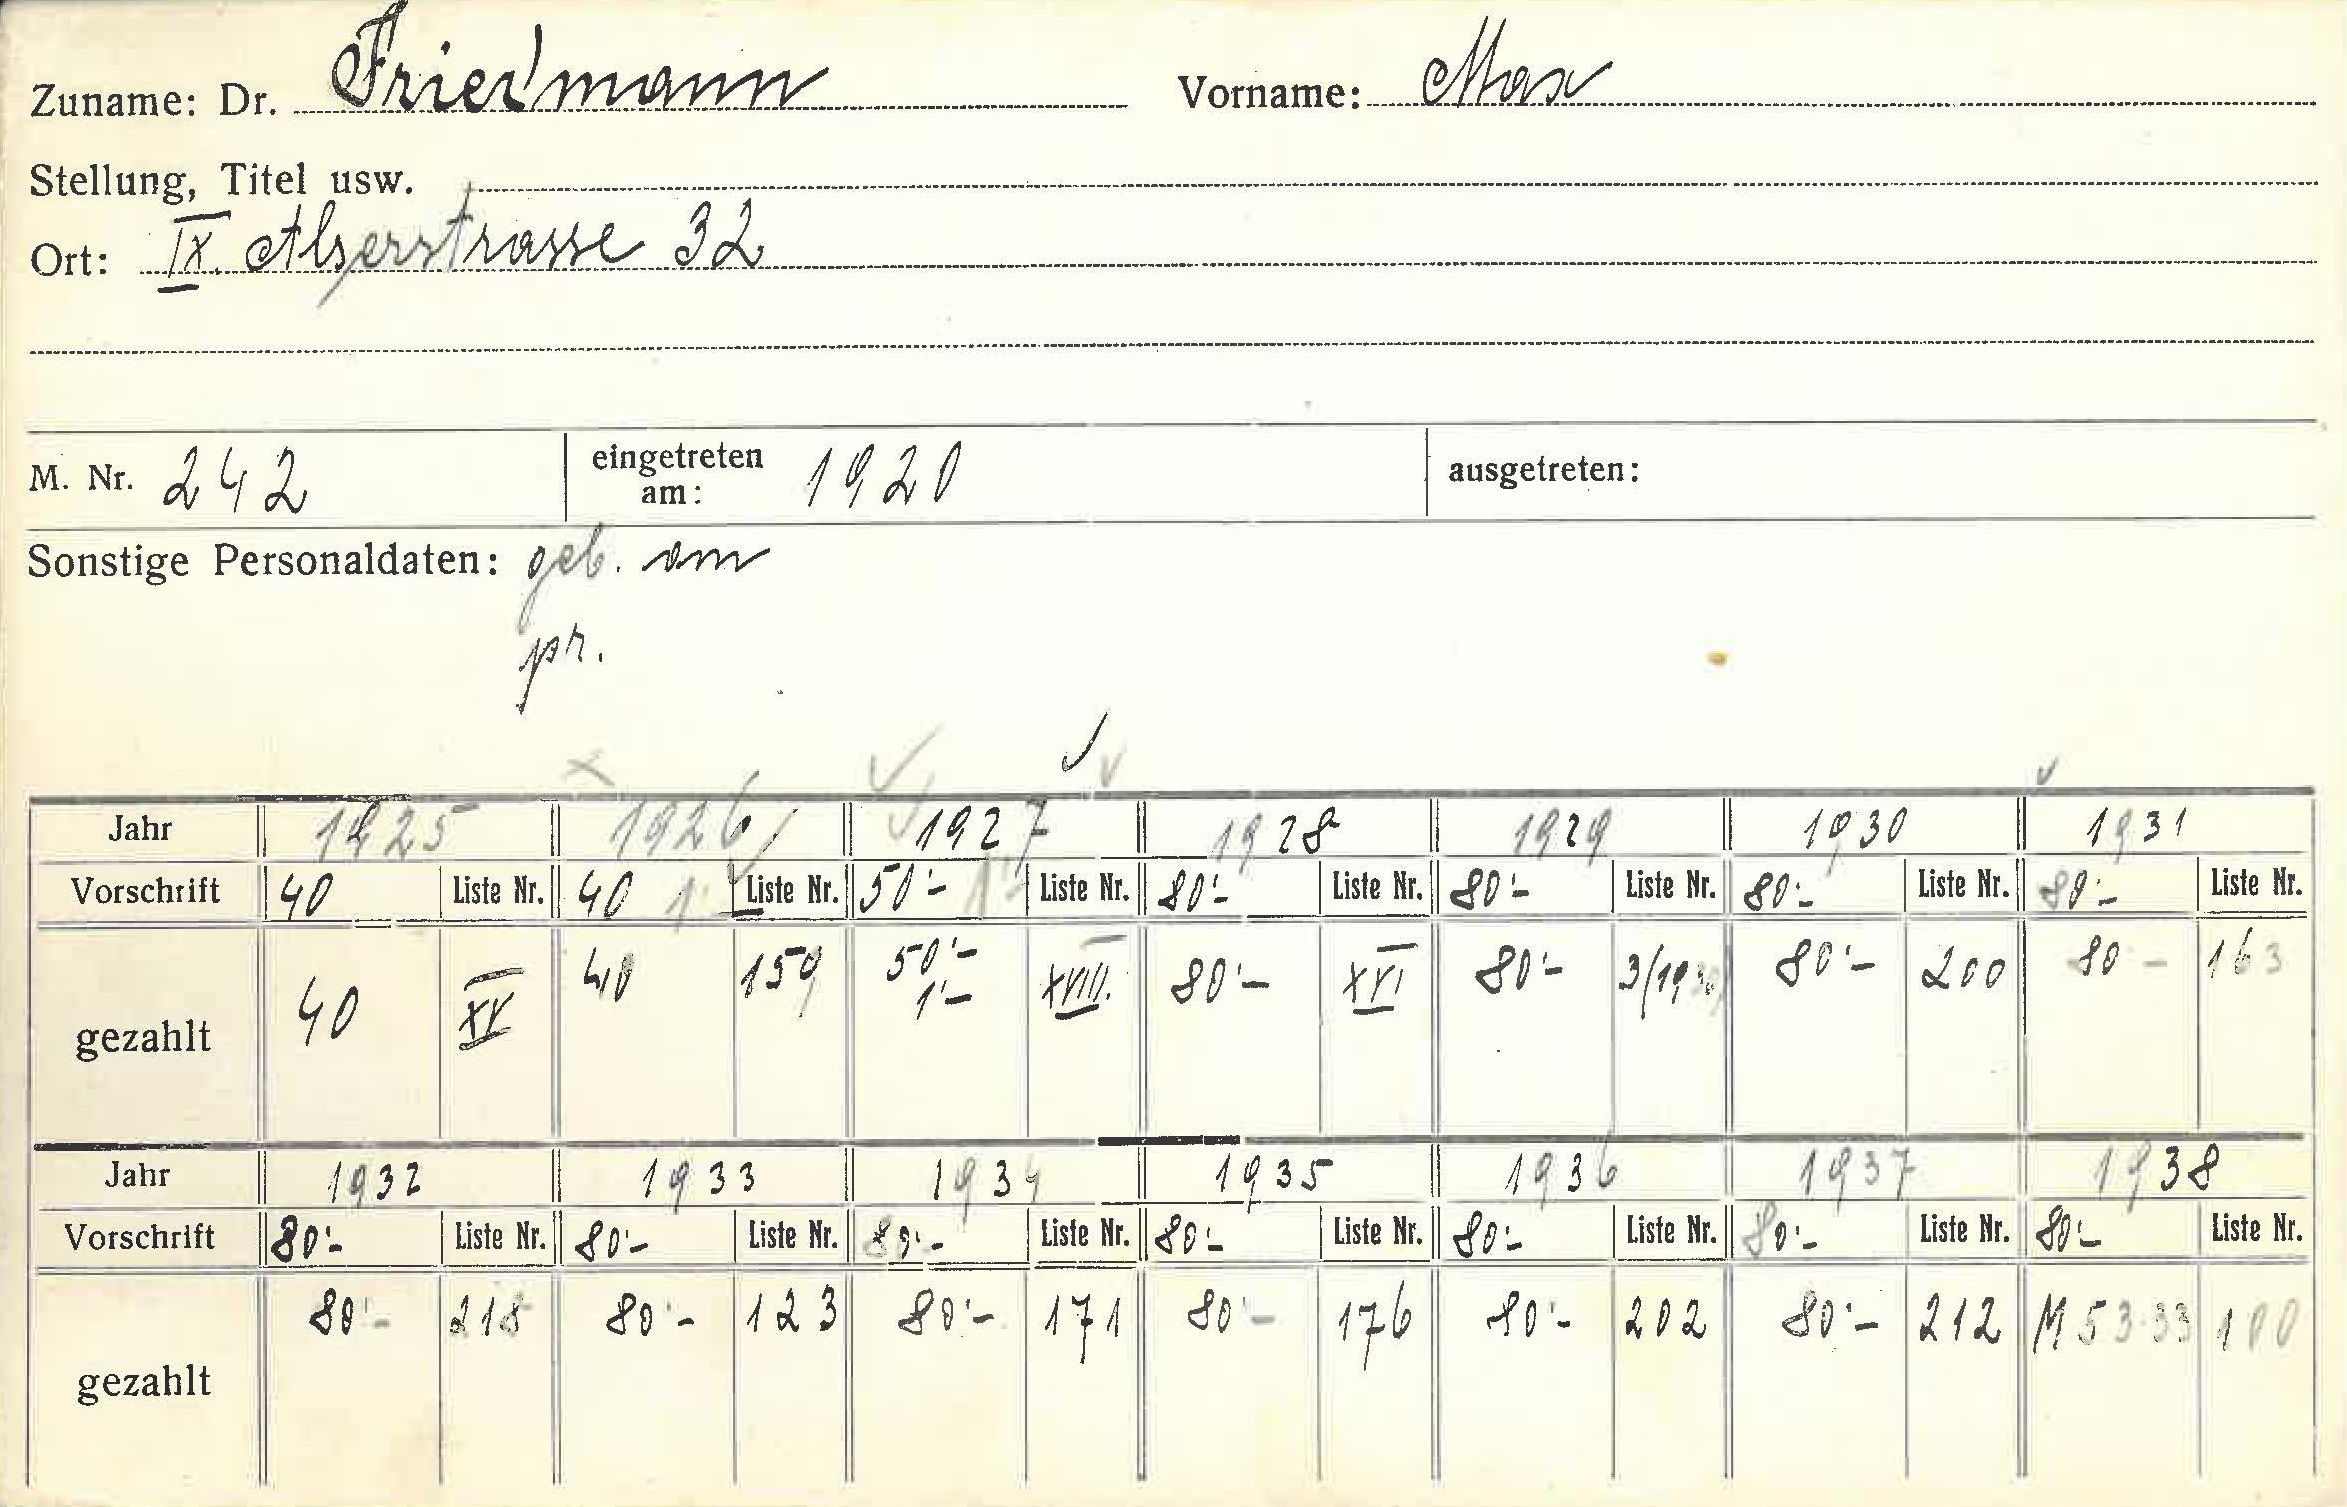 Zuname: Dr. Friedmann Vorname: Max
Stellung, Titel usw.
Ort: IX. Alserstrasse 32
M. Nr. 242 eingetreten am: 1920 ausgetreten:
Sonstige Personaldaten: geb. am
pr.
Jahr 1925 1926 1927 1928 1929 1930 1931
Vorschrift 40 Liste Nr. 40 1'- Liste Nr. 50'- 1'- Liste Nr. 80'- Liste Nr. 80'- Liste Nr. 80'- Liste Nr. 80'- Liste Nr.
gezahlt 40 XV 40 159 50'- XVIII. 80'- XVI 80'- 80'- 200 80 - 163
1'-
Jahr 1932 1933 1934 1935 1936 1937 1938
Vorschrift 80'- Liste Nr. 80'- Liste Nr. 80'- Liste Nr. 80'- Liste Nr. 80'- Liste Nr. 80'- Liste Nr. 80'- Liste Nr.
gezahlt 80'- 218 80'- 123 80'- 171 80'- 176 80'- 202 80'- 212 M 53·33 100